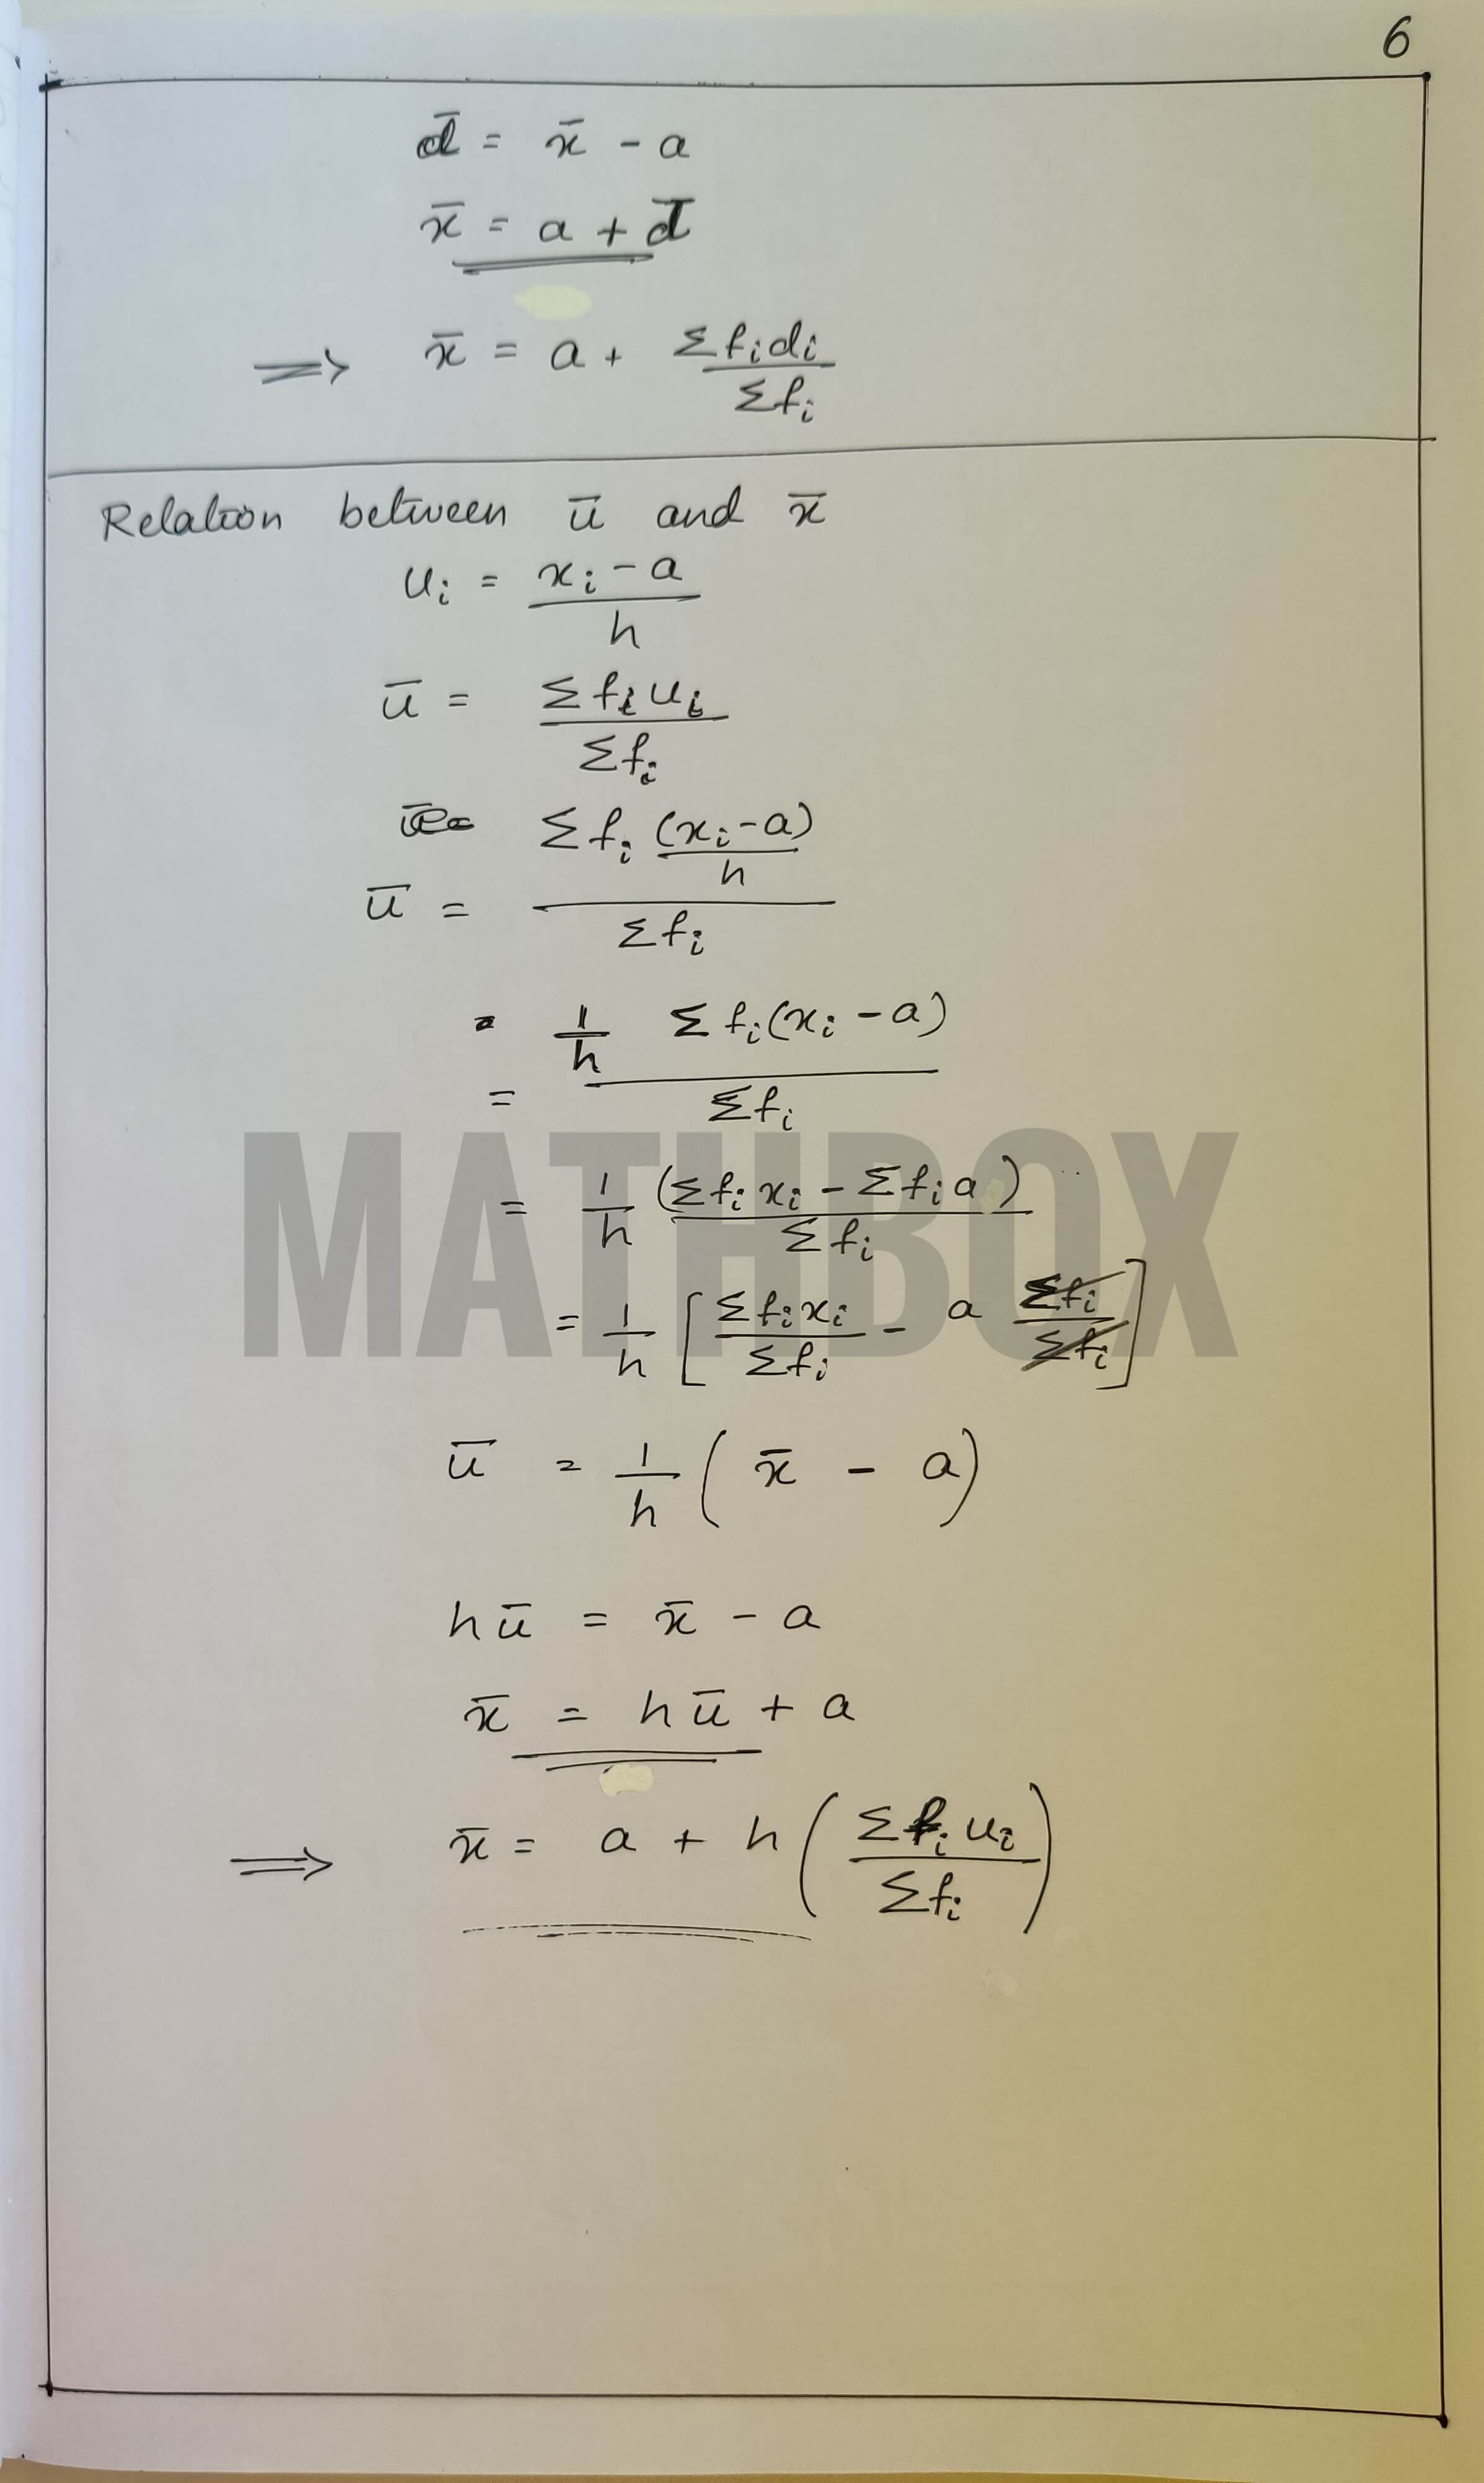 6
d̄ = x̄ - a
x̄ = a + d̄
⟹ x̄ = a + Σfidi / Σfi
Relation between ū and x̄
ui = xi - a / h
ū = Σ fi ui / Σfi
ū = Σ fi (xi - a) / h / Σfi
= 1/h Σ fi(xi - a) / Σfi
= 1/h (Σfi xi - Σfi a) / Σfi
= 1/h [Σfixi / Σfi - a Σfi / Σfi]
ū = 1/h (x̄ - a)
hū = x̄ - a
x̄ = hū + a
⟹ x̄ = a + h (Σfi ui / Σfi)
MATHBOX